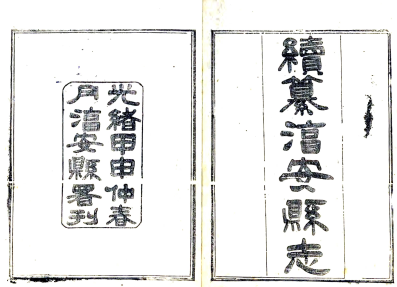 續纂淳安縣志
光緒甲申仲春
月淳安縣署刊